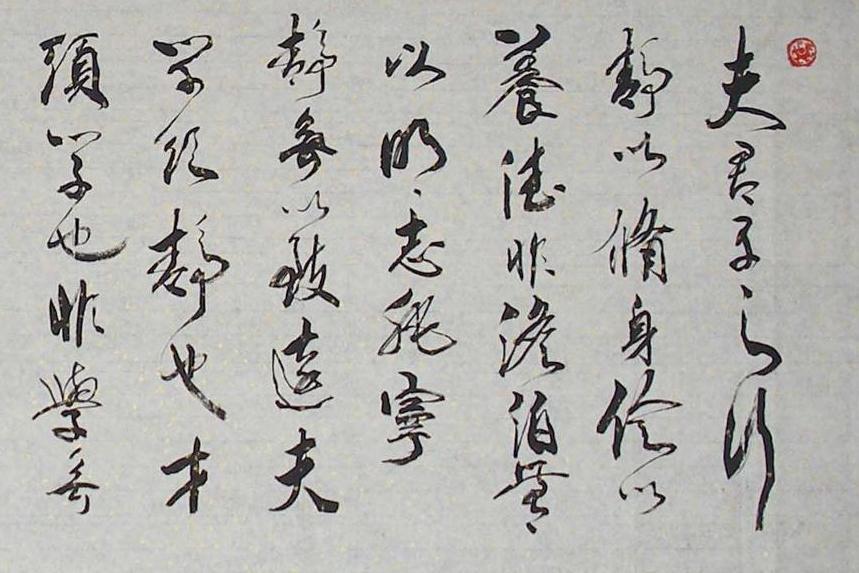 夫君子之行
靜以脩身儉以
養德非澹泊無
以明志非寧
靜無以致遠夫
學須靜也才
須學也非學無